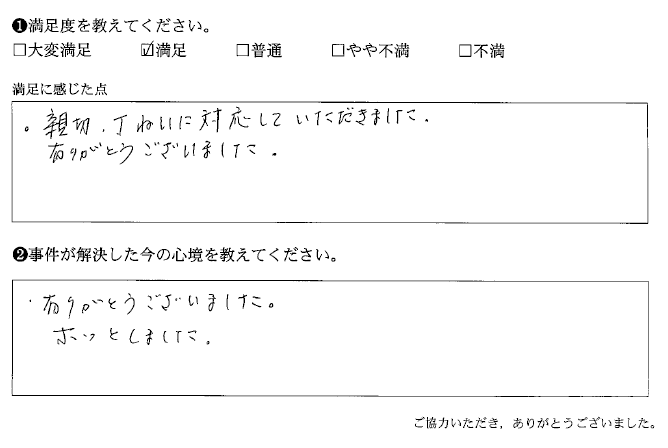 ❶満足度を教えてください。
□大変満足 ☑満足 □普通 □やや不満 □不満
満足に感じた点
。親切、丁ねいに対応していただきました。
有りがとうございました。
❷事件が解決した今の心境を教えてください。
・有りがとうございました。
ホッとしました。
ご協力いただき、ありがとうございました。